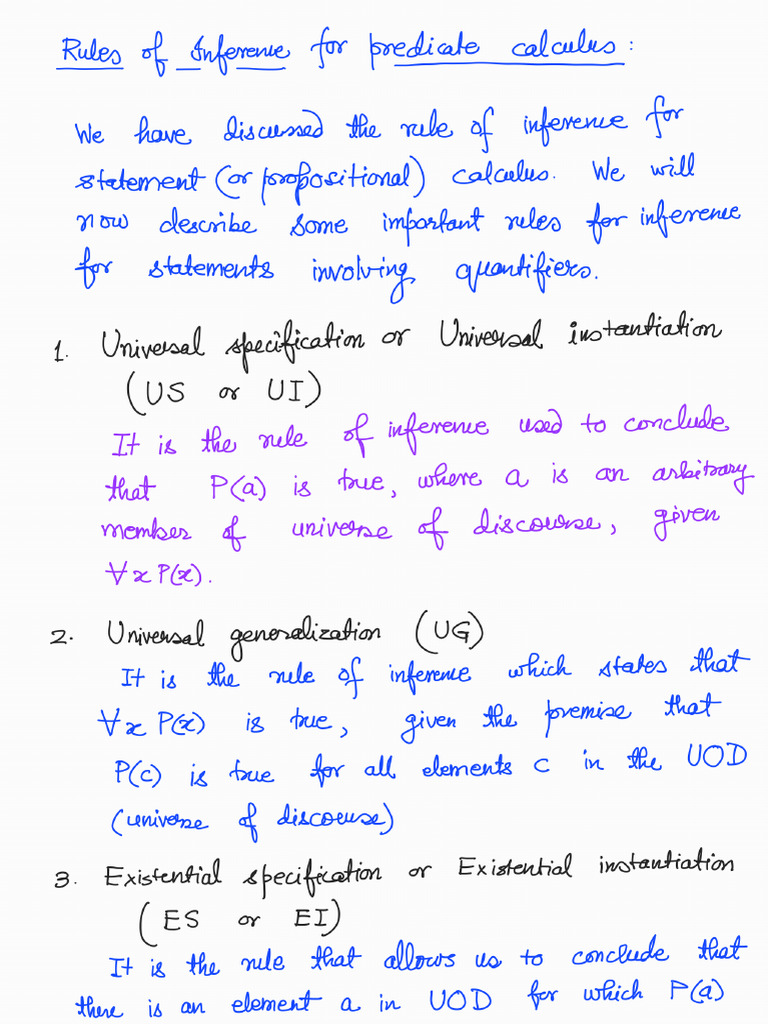 Rules of Inference for predicate calculus:
We have discussed the rule of inference for
statement (or propositional) calculus. We will
now describe some important rules for inference
for statements involving quantifiers.
1. Universal specification or Universal instantiation
(US or UI)
It is the rule of inference used to conclude
that P(a) is true, where a is an arbitrary
member of universe of discourse, given
∀x P(x).
2. Universal generalization (UG)
It is the rule of inference which states that
∀x P(x) is true, given the premise that
P(c) is true for all elements c in the UOD
(universe of discourse)
3. Existential specification or Existential instantiation
(ES or EI)
It is the rule that allows us to conclude that
there is an element a in UOD for which P(a)